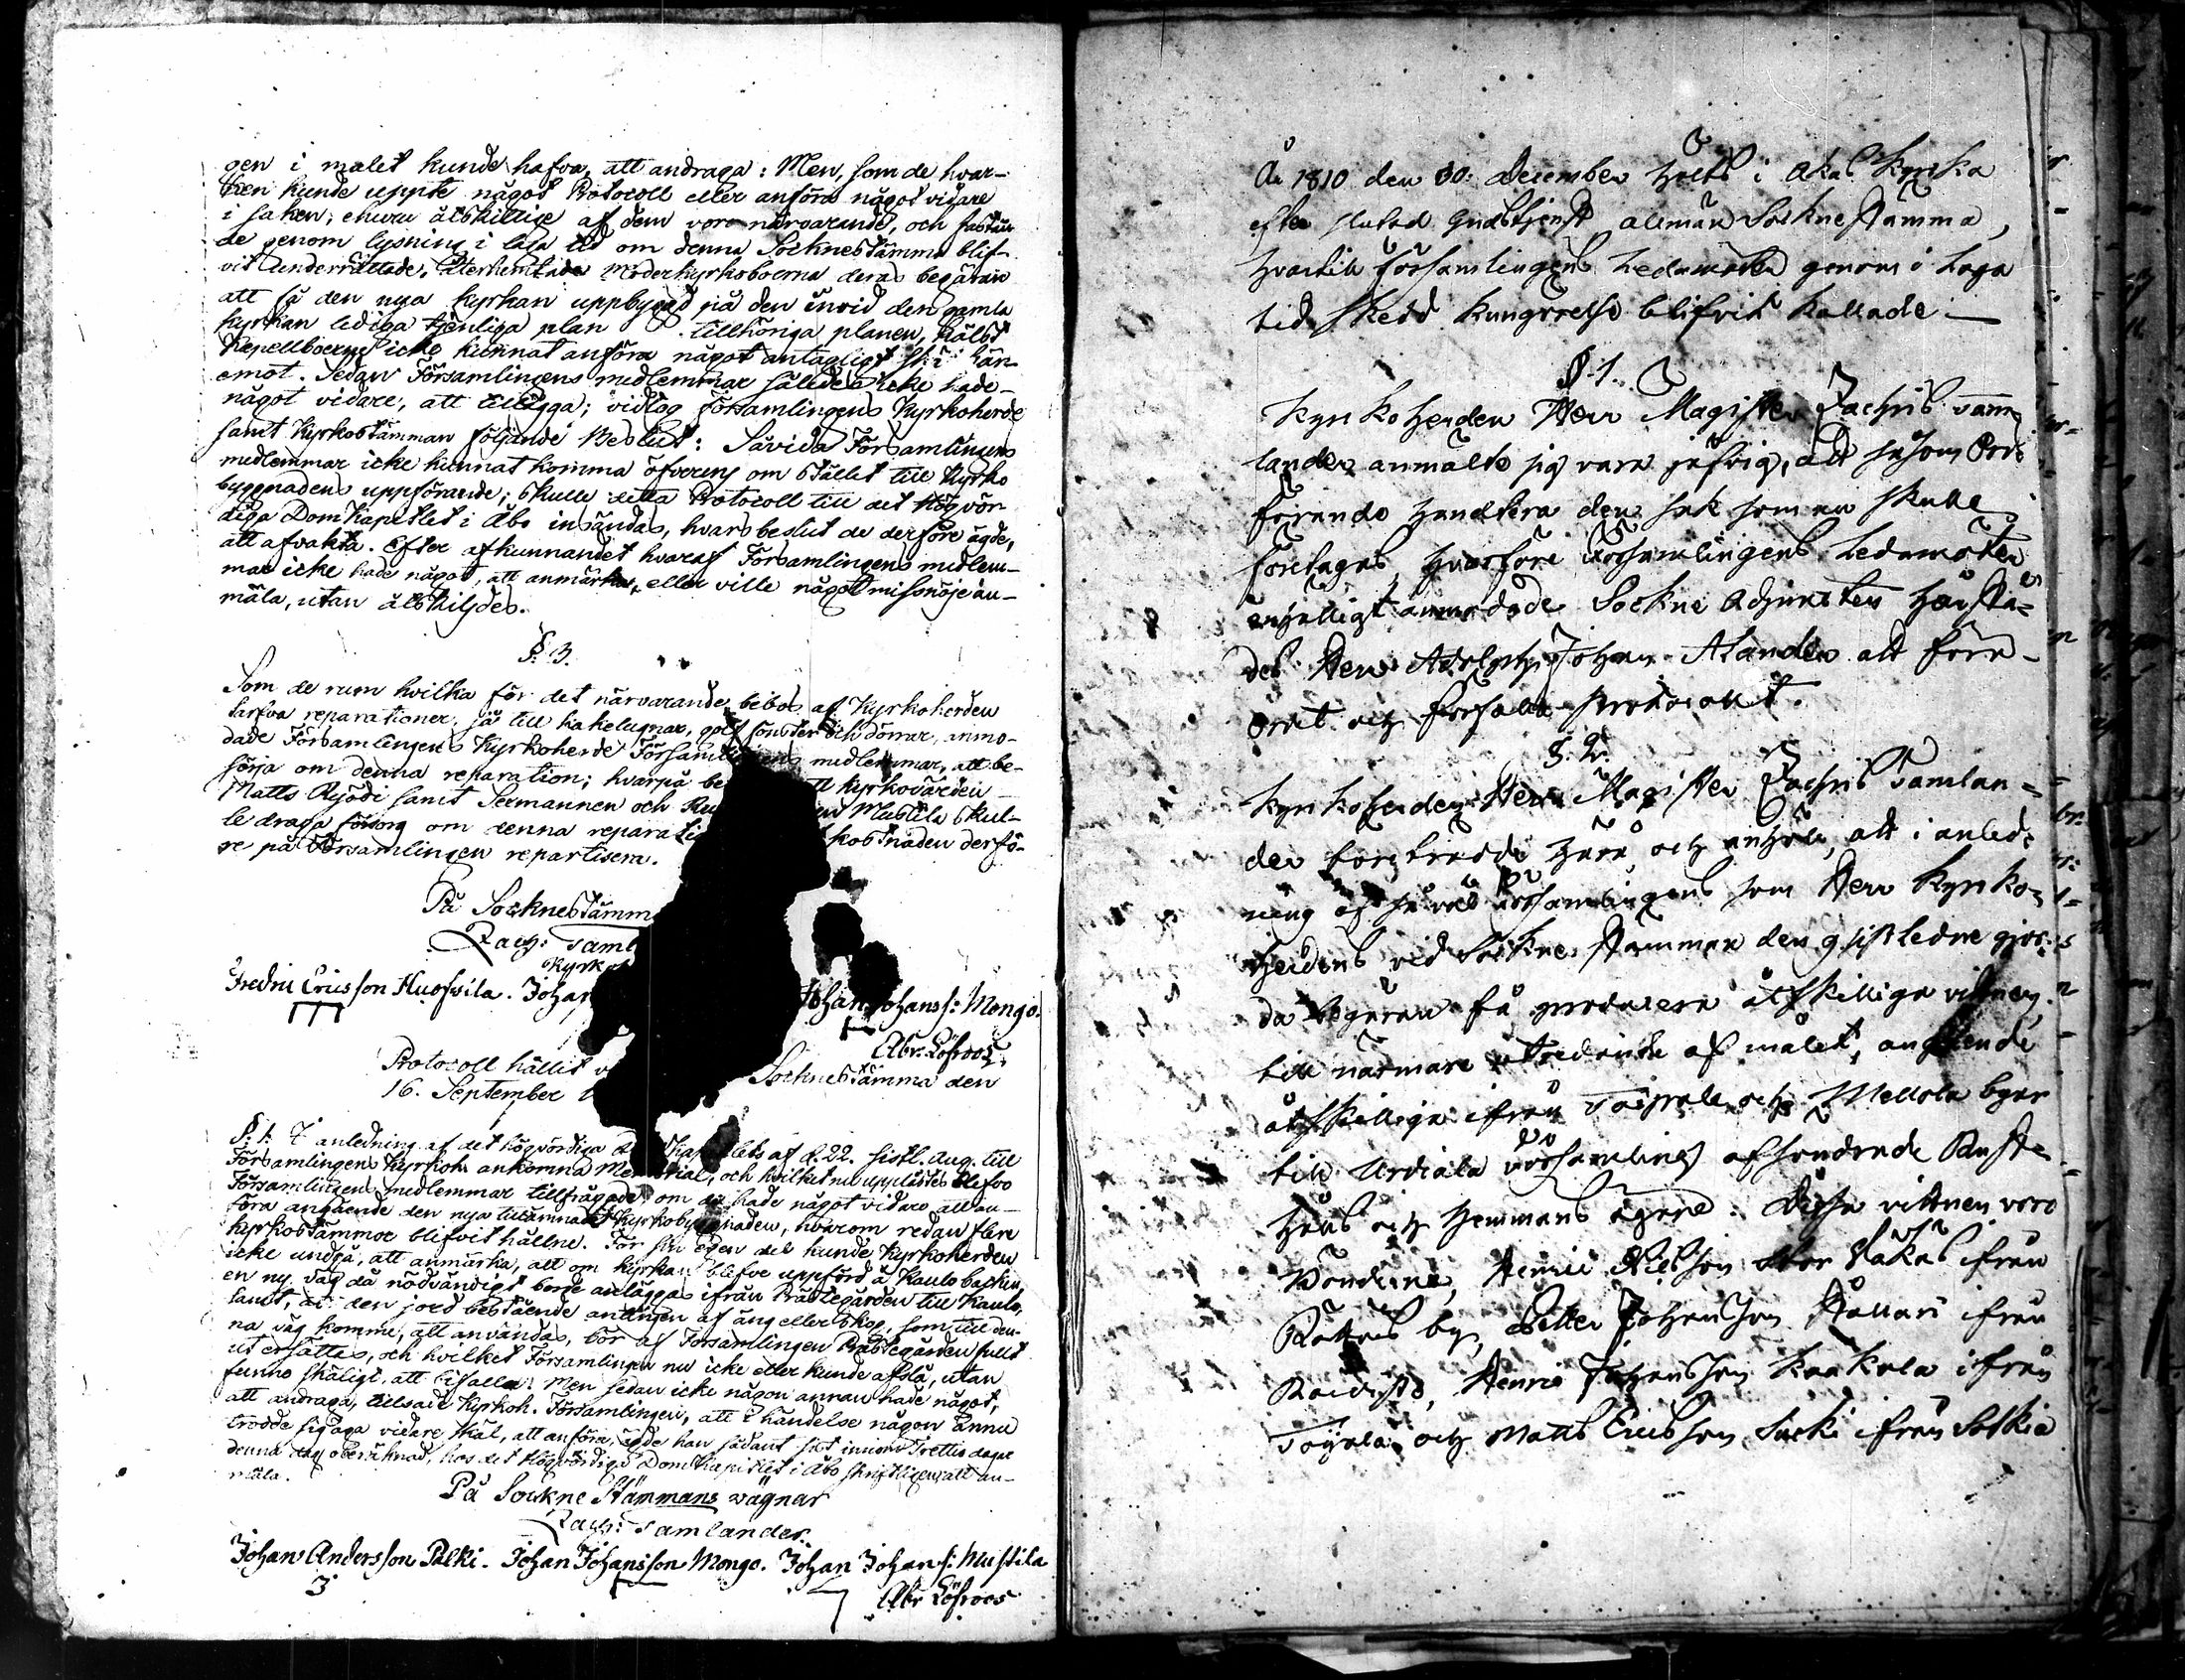 gen i målet kunde hafva, att andraga: Men, som de hvar-
ken kunde uppte något Protocoll eller anföra något vidare
i saken, ehuru åtskillige af dem voro närvarande, och
de genom lysning i laga tid om denna Socknestämma blif-
vit underrättade, återhemtade Moderkyrkoboerna deras begäran
att få den nya kyrkan uppbyggd på den invid den gamla
kyrkan lediga tjenliga plan tillhöriga planen, hälst
Kapellboerne icke kunnat anföra något antagligt skäl här
emot. Sedan Församlingens medlemmar således icke hade
något vidare, att tillägga; vidtog Församlingens Kyrkoherde
samt Kyrkostämman följande Beslut: Såvida Församlingens
medlemmar icke kunnat komma öfverens om stället till Kyrko
byggnadens uppförande; skulle detta Protocoll till det Högvör
diga DomKapitlet i Åbo insändas, hvars beslut de derföre ägde,
att afvakta. Efter afkunnandet hvaraf Församlingens medlem-
mar icke hade något, att anmärka, eller ville något missnöje an-
mäla, utan åtskiljdes.
§. 3.
Som de rum hvilka för det närvarande bebos af Kyrkoherden
tarfva reparationer, på till kakelugnar, golf fönster och dörrar, anmo-
dade Församlingens Kyrkoherde Församlingens medlemmar, att be-
sörja om denna reparation; hvarpå be tt Kyrkovärden
Matts Äijödi samt Sexmannen och Mustila skul-
le draga försorg om denna reparati kostnaden derfö-
re på Församlingen repartisera.
På Socknestämm
Zach: Taml
Kyrk
Fredric Ericsson Huofwila. Johan Johan Johanss: Mongo.
Abr. Löfroos
Protocoll hållit v Socknestämma den
16. September 1
§. 1. I anledning af det högvördiga Kapitlets af d. 22. sistl. Aug. till
Församlingens Kyrkoh. ankomna Memorial, och hvilket nu upplästes blefvo
Församlingens medlemmar tillfrågade, om de hade något vidare att an-
föra angående den nya tillämnade Kyrkobyggnaden, hvarom redan flere
kyrkostämmor blifvit hållne. För sin egen del kunde Kyrkoherden
icke undgå, att anmärka, att om kyrkan blefve uppförd å Kaulo backen
en ny väg då nödvändigt borde anläggas ifrån Prästegården till Kaulo,
samt, att den jord bestående antingen af äng eller skog, som till den-
na väg komme, att användas, bör af Församlingen Prästegården fullt
ut ersättas, och hvilket Församlingen nu icke eller kunde afslå, utan
funno skäligt, att bifalla: Men sedan icke någon annan hade något,
att andraga, tillsade Kyrkoh. Församlingen, att i händelse någon ännu
trodde sig äga vidare skäl, att anföra, ägde han sådant sist innom Trettio dagar
denna dag oberäknad, hos det Högvördiga DomKapitlet i Åbo skriftligen att an-
mäla.
På Sockne Stämmans wägnar
Zach: Tamlander.
Johan Andersson Palki. Johan Johansson Mongo. Johan Johans s: Mustila
3
Abr Löfroos
År 1810 den 30. December hölts i Akas Kyrka
efter slutad Gudstjenst allmän Socknestämma,
hvartill Församlingens Ledamöter genom i Laga
tid skedd kungörelse blifvit kallade.
§. 1.
Kyrkoherden Herr Magister Zachris Tamm-
lander anmälte sig vara jäfvig, att såsom Ord-
förande handtera den sak som nu skulle
företagas, hvarföre Församlingens Ledamöter
enhälligt anmodade Sockne Adjuncten härstä-
des Herr Adolph Johan Alander att föra
ordet och författa Protocollet.
§. 2.
Kyrkoherden Herr Magister Zachris Tamlan-
der företrädde härå, och anhöll, att i anled-
ning af så väl Församlingens som Herr Kyrko-
herdens vid Sockne Stämman den 9 sistledne gjor-
da begäran få producera åtskilliga vittnen,
till närmare utredande af målet, angående
åtskillige ifrån Toijala och Mellola byar
till Urdiala Församling afsöndrade Ruste-
hålls och Hemmans ägare. Dessa vittnen voro
Bönderne, Henric Nilsson Stor ifrån
by, Petter Johansson ifrån
Henric Johansson Kaakola ifrån
Toijala, och Matts Ericsson ifrån Sotkia